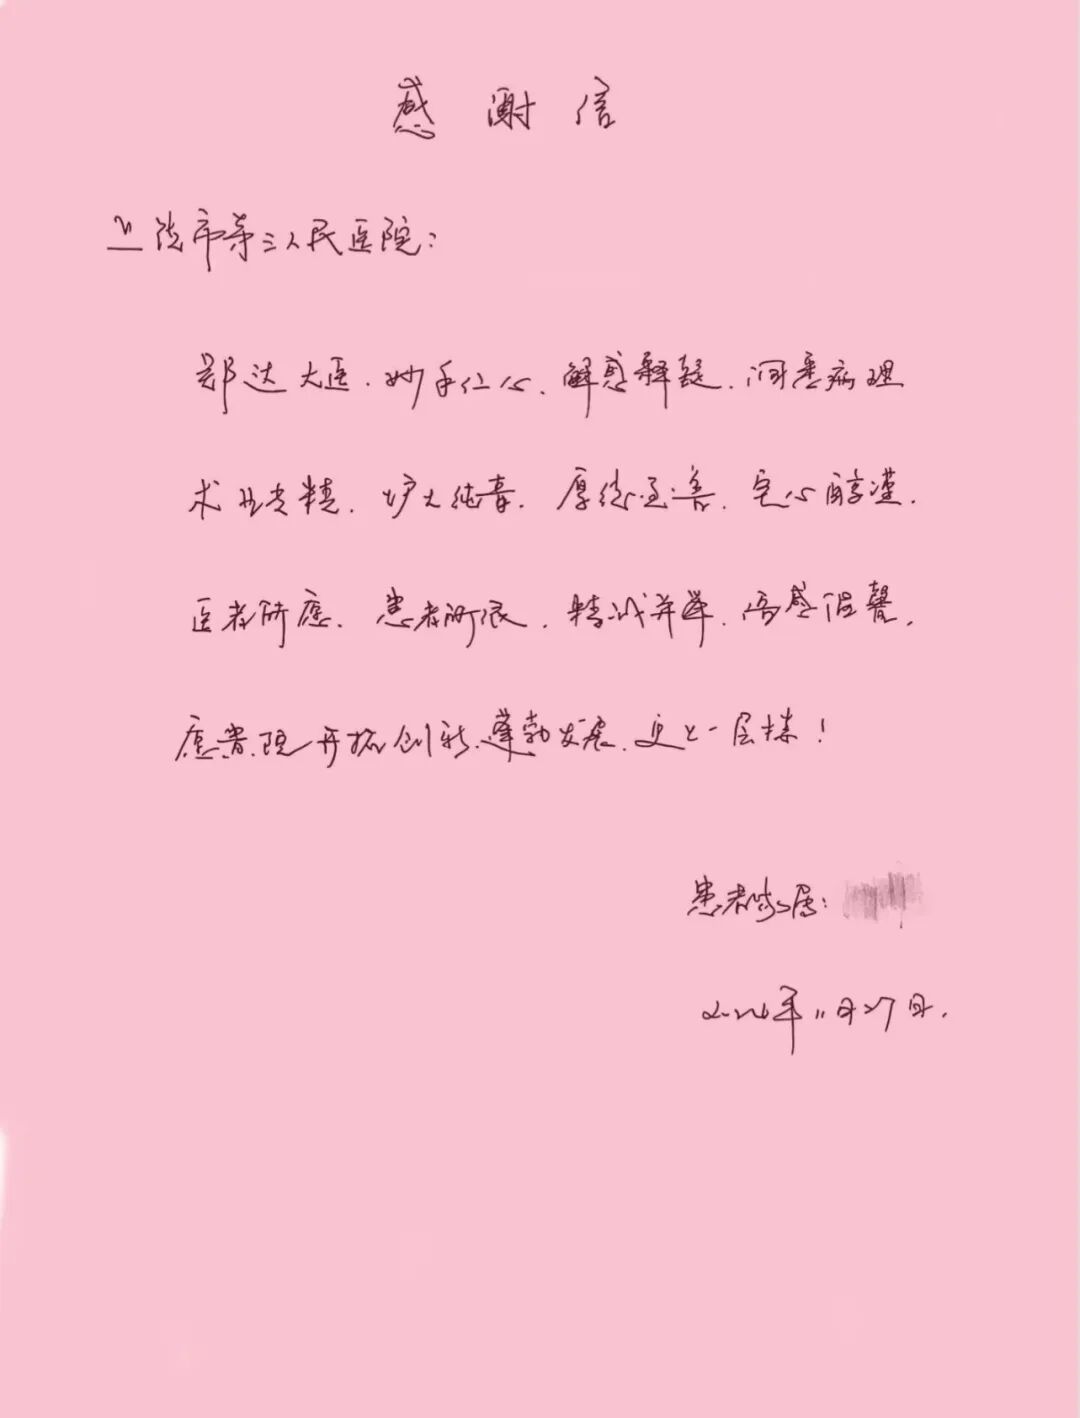 感谢信
兰陵市第三人民医院:
郑达大医.妙手仁心.解惑释疑.洞悉病理
术业专精.炉火纯青.厚德至善.宅心醇谨.
医者所愿.患者所依.精诚并举.高感德馨.
愿贵院开拓创新.蓬勃发展.更上一层楼!
患者家属:
年11月27日.